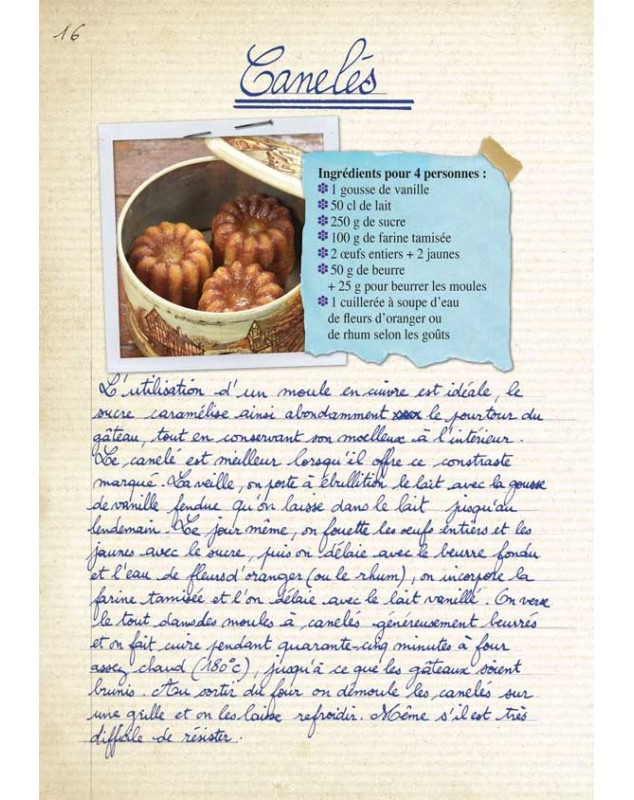 16
Canelés
Ingrédients pour 4 personnes :
1 gousse de vanille
50 cl de lait
250 g de sucre
100 g de farine tamisée
2 œufs entiers + 2 jaunes
50 g de beurre
+ 25 g pour beurrer les moules
1 cuillerée à soupe d'eau
de fleurs d'oranger ou
de rhum selon les goûts
L'utilisation d'un moule en cuivre est idéale, le
sucre caramélise ainsi abondamment le pourtour du
gâteau, tout en conservant son moelleux à l'intérieur.
Le canelé est meilleur lorsqu'il offre ce constraste
marqué. La veille, on porte à ébullition le lait avec la gousse
de vanille fendue qu'on laisse dans le lait jusqu'au
lendemain. Le jour même, on fouette les oeufs entiers et les
jaunes avec le sucre, puis on délaie avec le beurre fondu
et l'eau de fleurs d'oranger (ou le rhum), on incorpore la
farine tamisée et l'on délaie avec le lait vanillé. On verse
le tout dans des moules à canelés généreusement beurrés
et on fait cuire pendant quarante-cinq minutes à four
assez chaud (180°c), jusqu'à ce que les gâteaux soient
brunis. Au sortir du four on démoule les canelés sur
une grille et on les laisse refroidir. Même s'il est très
difficile de résister.